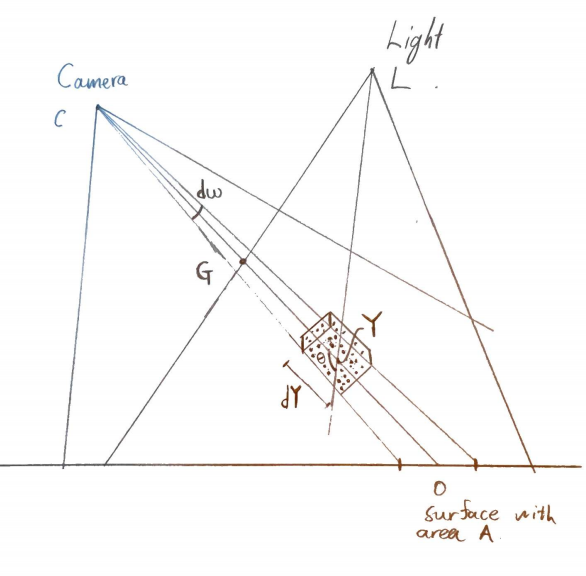 Light
L .
Camera
C
dω
G
Y
θ
dY
O
surface with
area A.